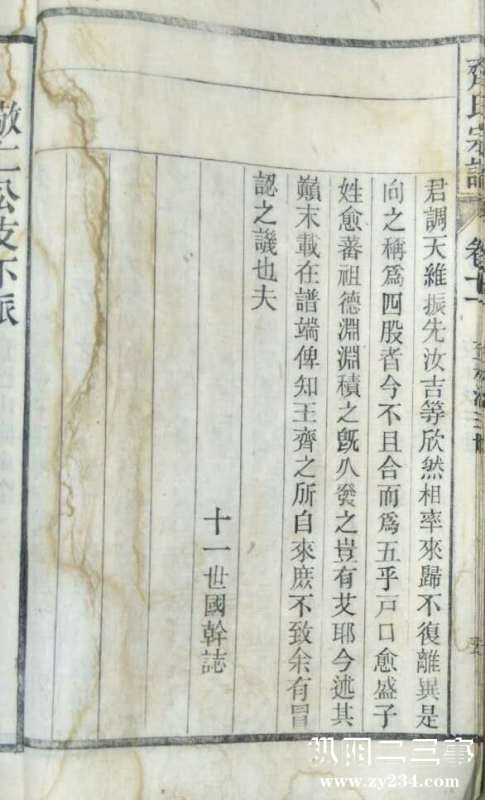 齊氏宗譜
卷十一
君調天維振先汝吉等欣然相率來歸不復離異是
向之稱爲四股者今不且合而爲五乎戸口愈盛子
姓愈蕃祖德淵淵積之旣久發之豈有艾耶今述其
巔末載在譜端俾知王齊之所自來庶不致余有冒
認之譏也夫
十一世國幹誌
敬仁公支下派
枞阳二三事
www.zy234.com